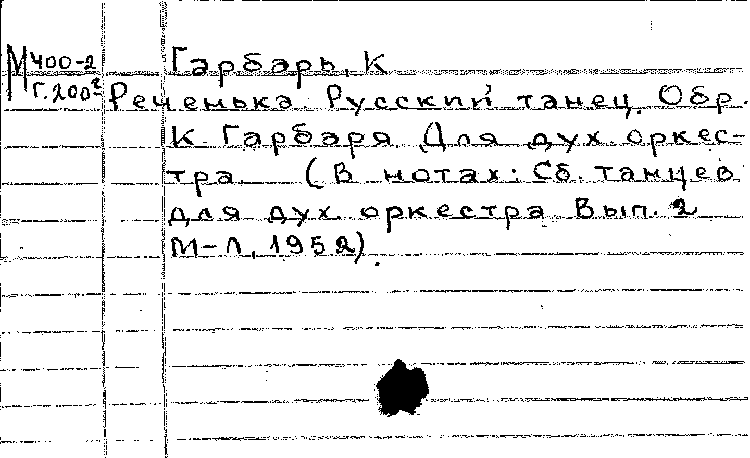 М 400-2
Г. 200²
Гарбарь, К
Реченька. Русский танец. Обр.
К. Гарбаря. Для дух. орке-
стра. (В нотах: Сб. танцев
для дух. оркестра. Вып. 2
М-Л, 1952).